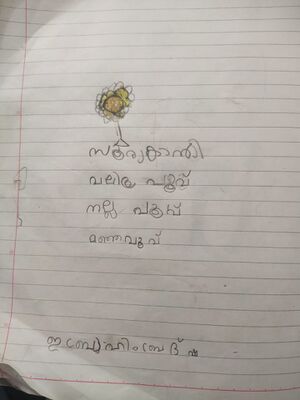 സൂര്യകാന്തി
വലിയ പൂവ്
നല്ല പൂവ്
മഞ്ഞപൂവ്